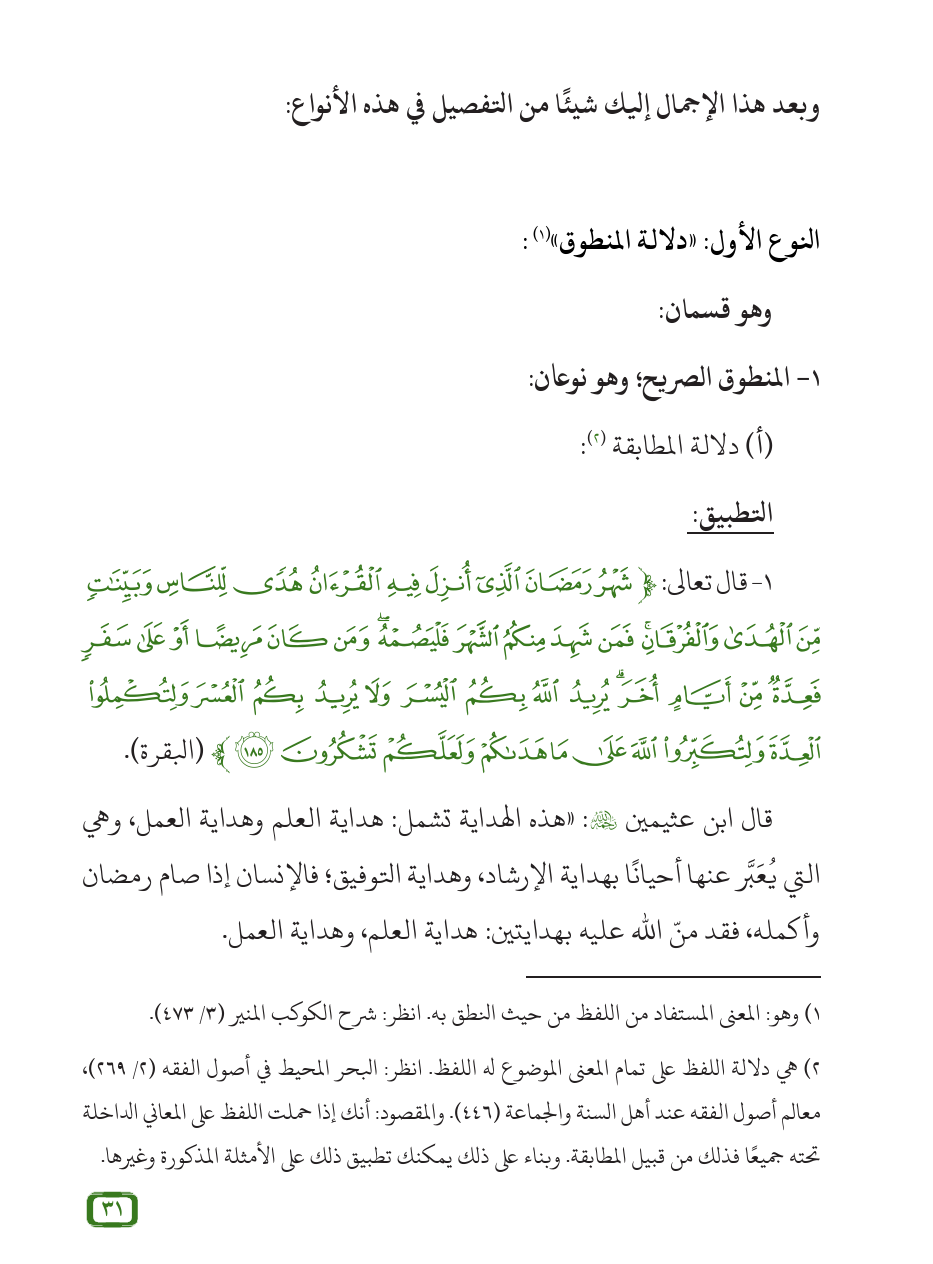 وبعد هذا الإجمال إليك شيئًا من التفصيل في هذه الأنواع:
النوع الأول: «دلالة المنطوق»(١) :
وهو قسمان:
١- المنطوق الصريح؛ وهو نوعان:
(أ) دلالة المطابقة (٢):
التطبيق:
١- قال تعالى: ﴿ شَهْرُ رَمَضَانَ ٱلَّذِىٓ أُنزِلَ فِيهِ ٱلْقُرْءَانُ هُدًى لِّلنَّاسِ وَبَيِّنَٰتٍ
مِّنَ ٱلْهُدَىٰ وَٱلْفُرْقَانِ ۚ فَمَن شَهِدَ مِنكُمُ ٱلشَّهْرَ فَلْيَصُمْهُ ۖ وَمَن كَانَ مَرِيضًا أَوْ عَلَىٰ سَفَرٍ
فَعِدَّةٌ مِّنْ أَيَّامٍ أُخَرَ ۗ يُرِيدُ ٱللَّهُ بِكُمُ ٱلْيُسْرَ وَلَا يُرِيدُ بِكُمُ ٱلْعُسْرَ وَلِتُكْمِلُوا۟
ٱلْعِدَّةَ وَلِتُكَبِّرُوا۟ ٱللَّهَ عَلَىٰ مَا هَدَىٰكُمْ وَلَعَلَّكُمْ تَشْكُرُونَ ١٨٥ ﴾ (البقرة).
قال ابن عثيمين رحمه الله: «هذه الهداية تشمل: هداية العلم وهداية العمل، وهي
التي يُعَبَّر عنها أحيانًا بهداية الإرشاد، وهداية التوفيق؛ فالإنسان إذا صام رمضان
وأكمله، فقد منّ الله عليه بهدايتين: هداية العلم، وهداية العمل.
١) وهو: المعنى المستفاد من اللفظ من حيث النطق به. انظر: شرح الكوكب المنير (٣/ ٤٧٣).
٢) هي دلالة اللفظ على تمام المعنى الموضوع له اللفظ. انظر: البحر المحيط في أصول الفقه (٢/ ٢٦٩)،
معالم أصول الفقه عند أهل السنة والجماعة (٤٤٦). والمقصود: أنك إذا حملت اللفظ على المعاني الداخلة
تحته جميعًا فذلك من قبيل المطابقة. وبناء على ذلك يمكنك تطبيق ذلك على الأمثلة المذكورة وغيرها.
٣١